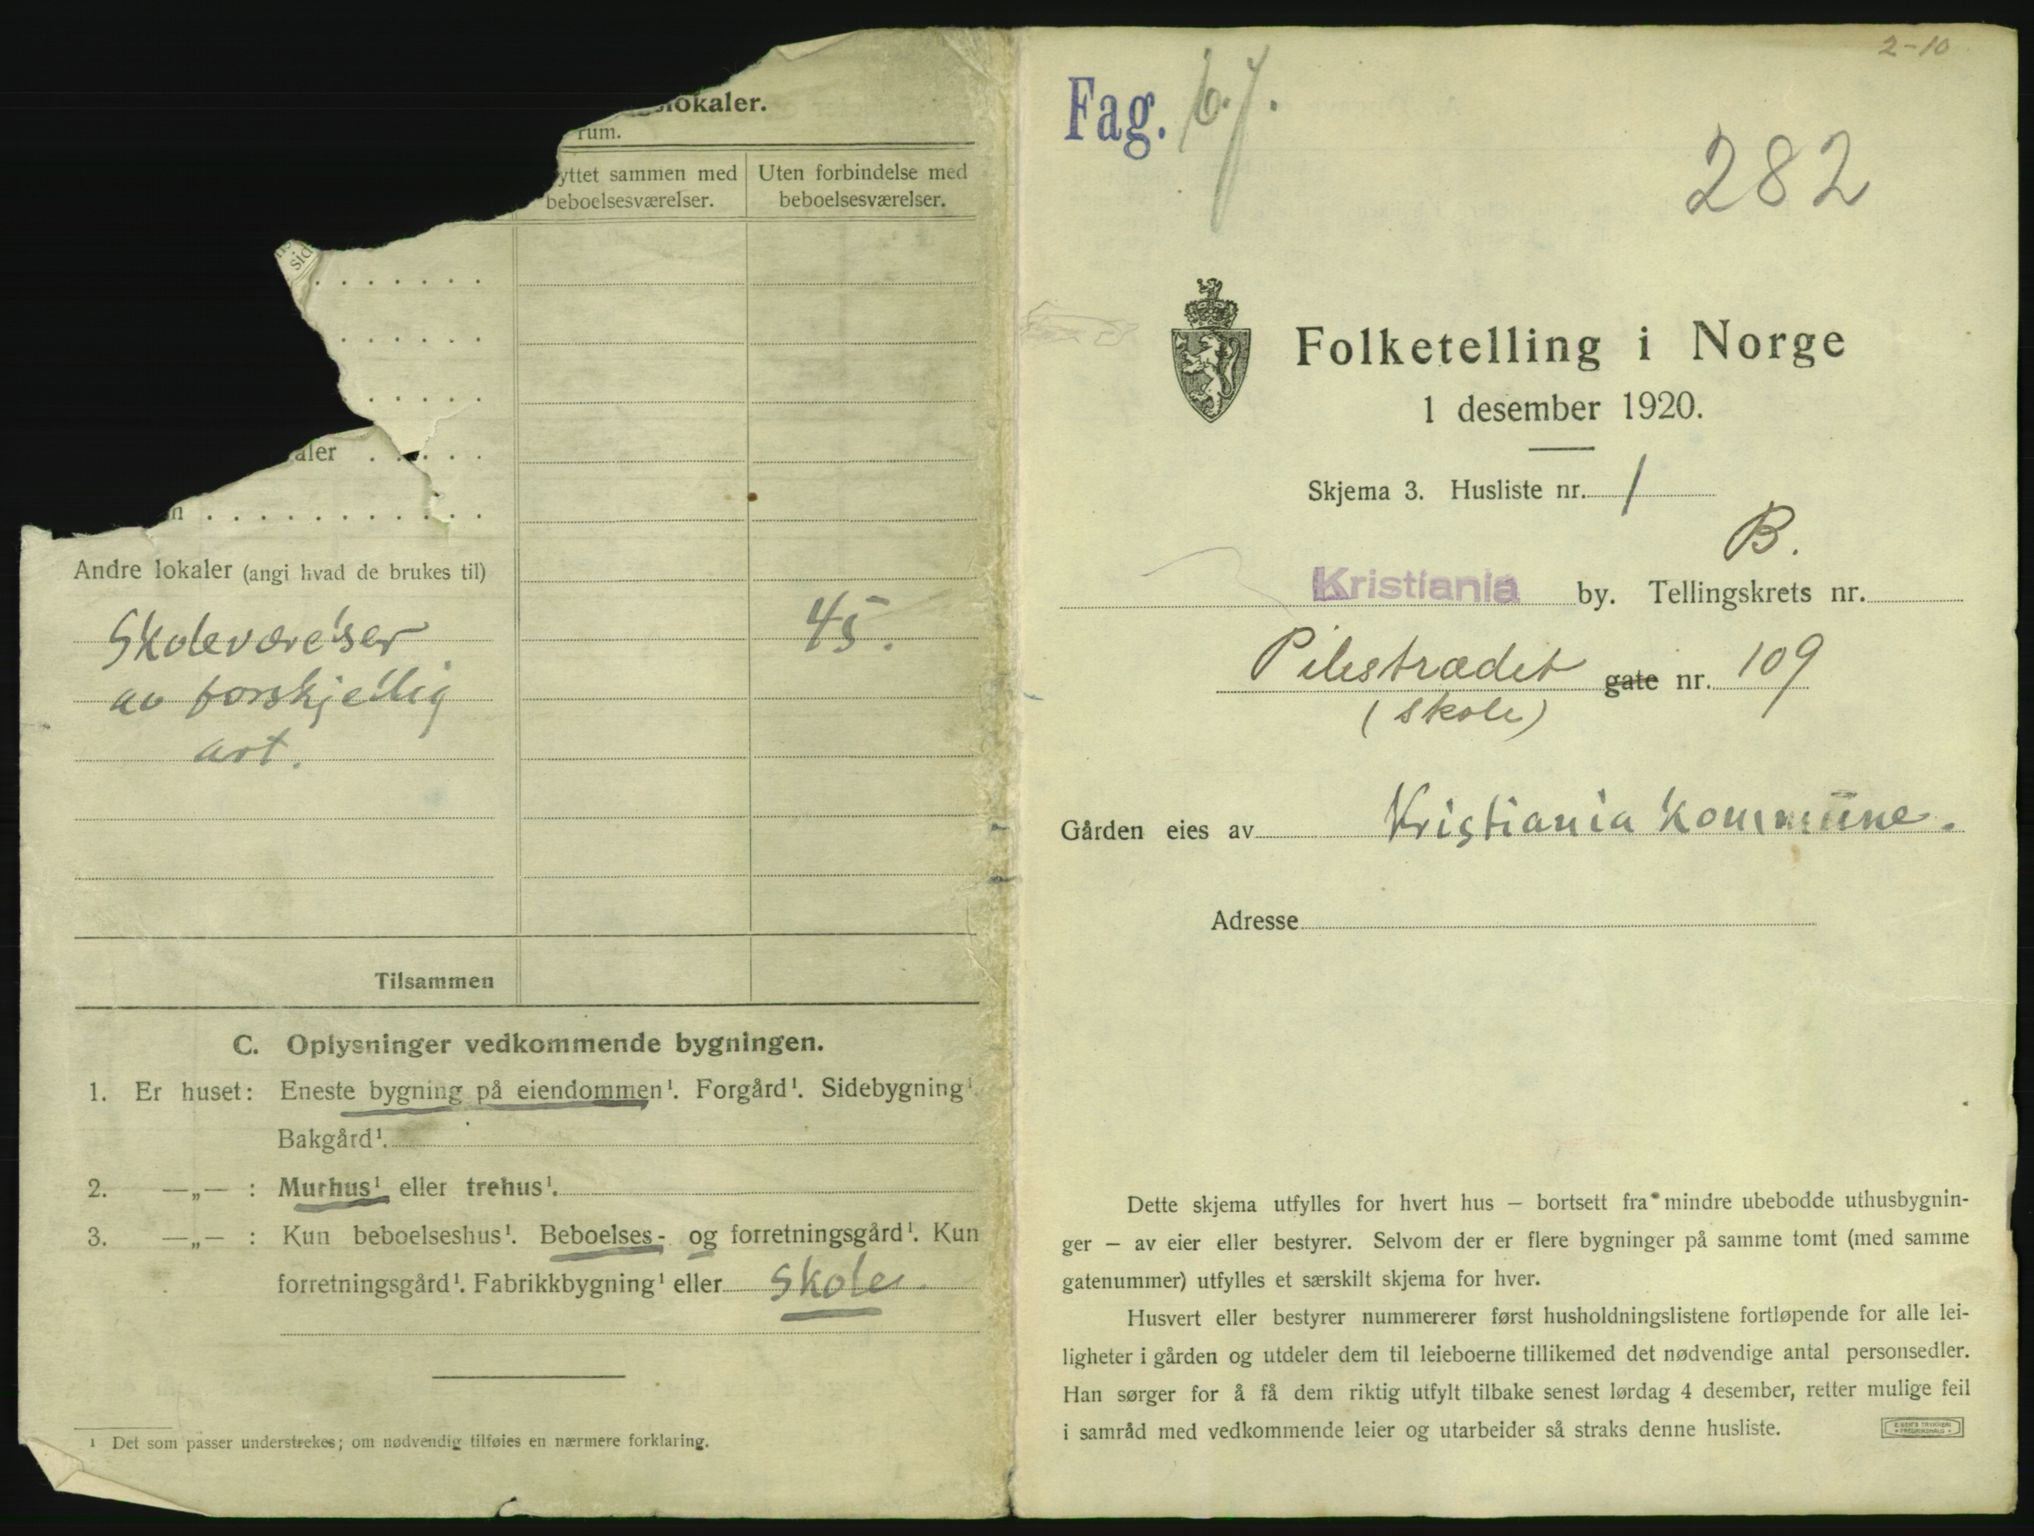 slokaler.
rum.
yttet sammen med
beboelsesværelser.
Uten forbindelse med
beboelsesværelser.
sid
aler . . . . .
n . . . . . . . . . . .
Andre lokaler (angi hvad de brukes til)
Skoleværelser
av forskjellig
art.
45.
Tilsammen
C. Oplysninger vedkommende bygningen.
1. Er huset: Eneste bygning på eiendommen¹. Forgård¹. Sidebygning¹.
Bakgård¹.
2. —„— : Murhus¹ eller trehus¹.
3. —„— : Kun beboelseshus¹. Beboelses- og forretningsgård¹. Kun
forretningsgård¹. Fabrikkbygning¹ eller skole.
¹ Det som passer understrekes; om nødvendig tilføies en nærmere forklaring.
2-10
Fag. 6.7.
282
Folketelling i Norge
1 desember 1920.
Skjema 3. Husliste nr. 1
B.
Kristiania by. Tellingskrets nr.
Pilestrædet gate nr. 109
(skole)
Gården eies av Kristiania kommune.
Adresse
Dette skjema utfylles for hvert hus – bortsett fra mindre ubebodde uthusbygnin-
ger – av eier eller bestyrer. Selvom der er flere bygninger på samme tomt (med samme
gatenummer) utfylles et særskilt skjema for hver.
Husvert eller bestyrer nummererer først husholdningslistene fortløpende for alle lei-
ligheter i gården og utdeler dem til leieboerne tillikemed det nødvendige antal personsedler.
Han sørger for å få dem riktig utfylt tilbake senest lørdag 4 desember, retter mulige feil
i samråd med vedkommende leier og utarbeider så straks denne husliste.